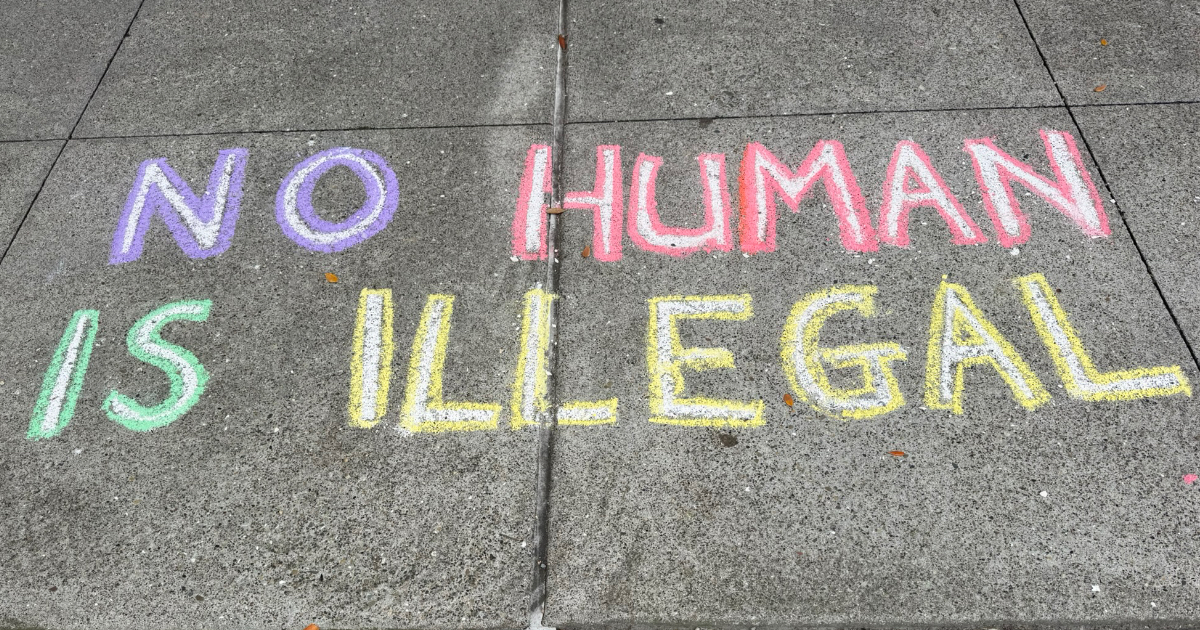 NO HUMAN
IS ILLEGAL